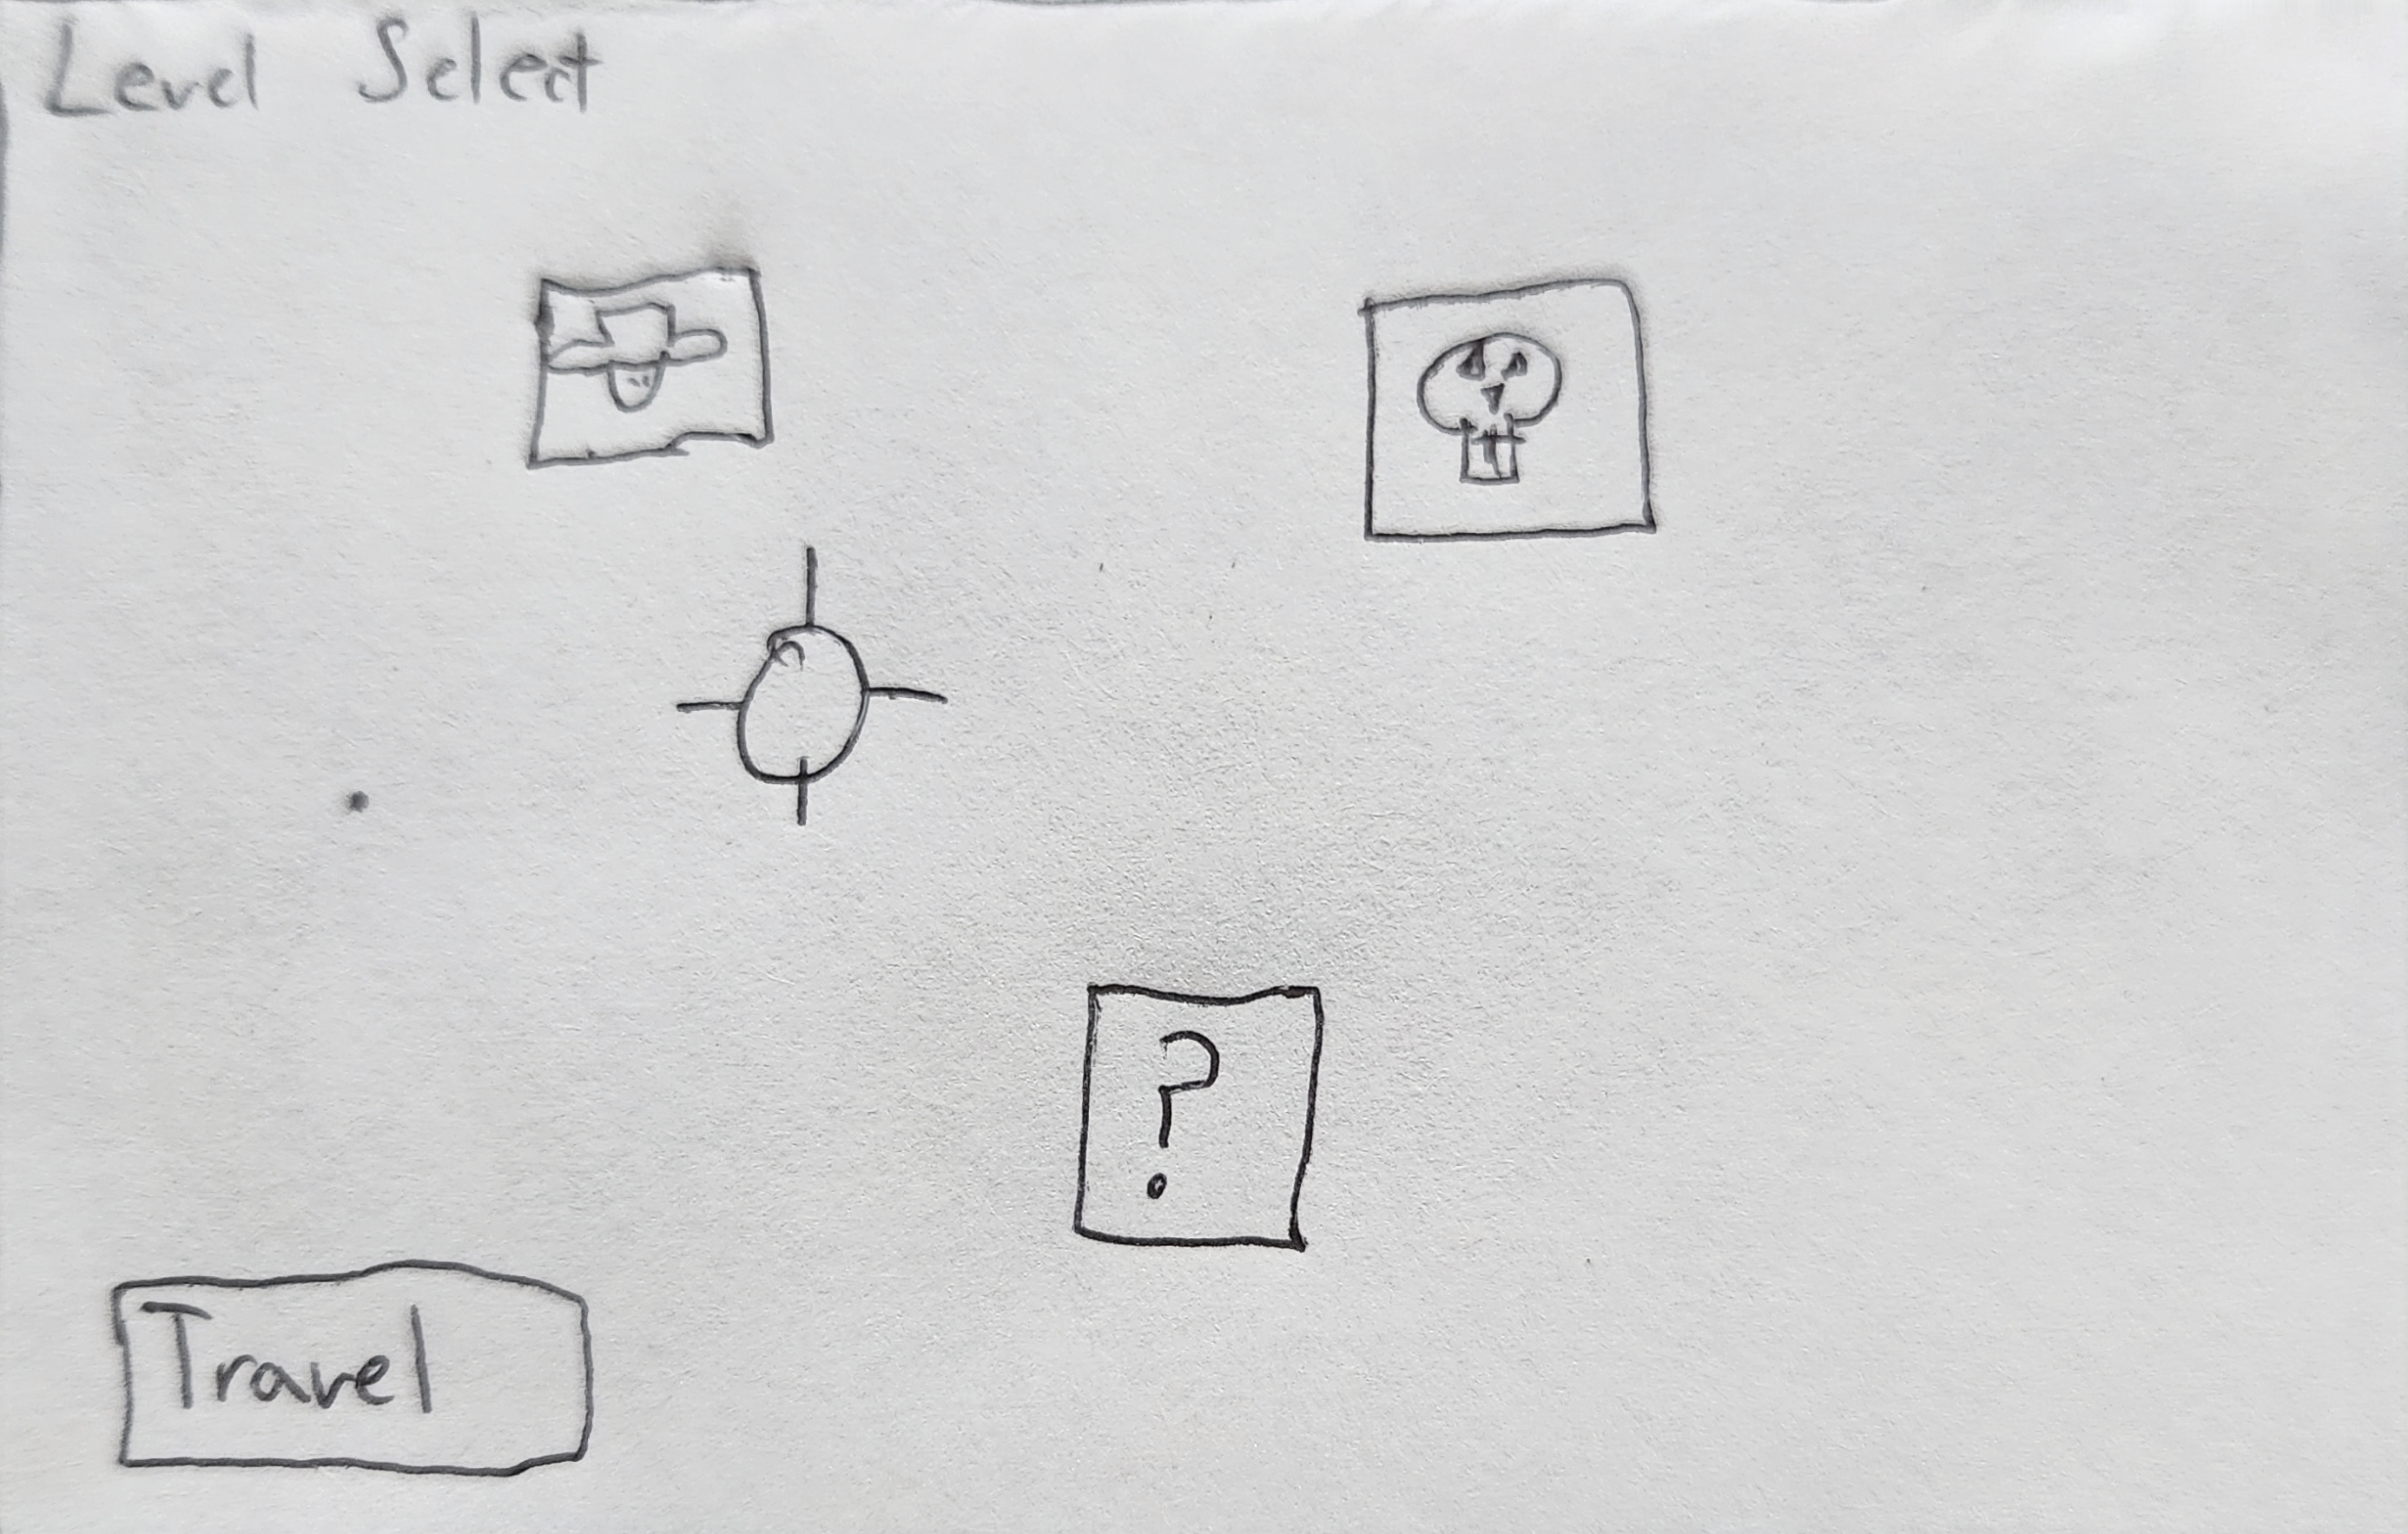 Level Select
?
Travel